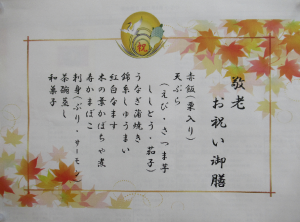 祝
敬老
お祝い御膳
赤飯（栗入り）
天ぷら
（えび・さつま芋
ししとう・茄子）
うなぎ蒲焼き
錦糸しゅうまい
紅白なます
木の葉かぼちゃ煮
寿かまぼこ
刺身（ぶり・サーモン）
茶碗蒸し
和菓子